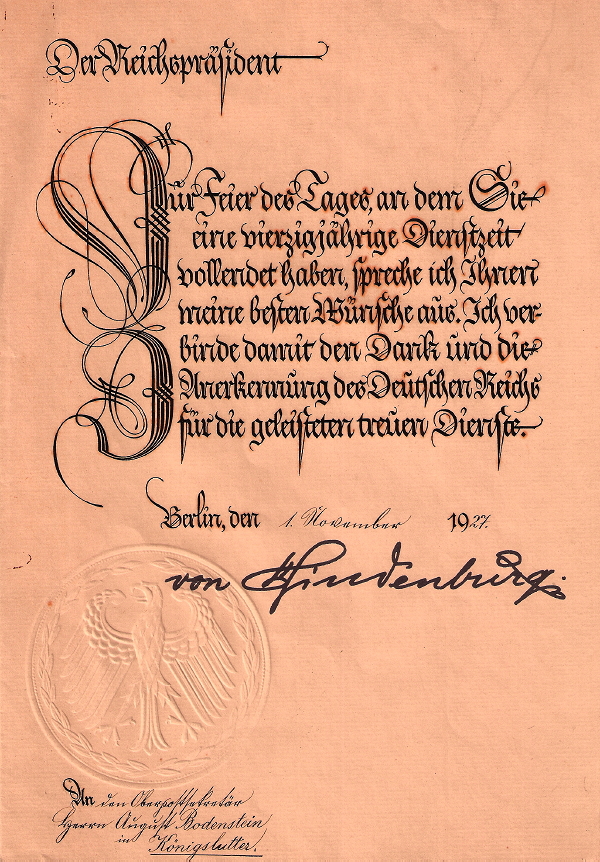 Der Reichspräsident
Zur Feier des Tages, an dem Sie
eine vierzigjährige Dienstzeit
vollendet haben, spreche ich Ihnen
meine besten Wünsche aus. Ich ver-
binde damit den Dank und die
Anerkennung des Deutschen Reichs
für die geleisteten treuen Dienste.
Berlin, den 1. November 1927.
von Hindenburg.
An den Oberpostsekretär
Herrn August Bodenstein
in Königslutter.